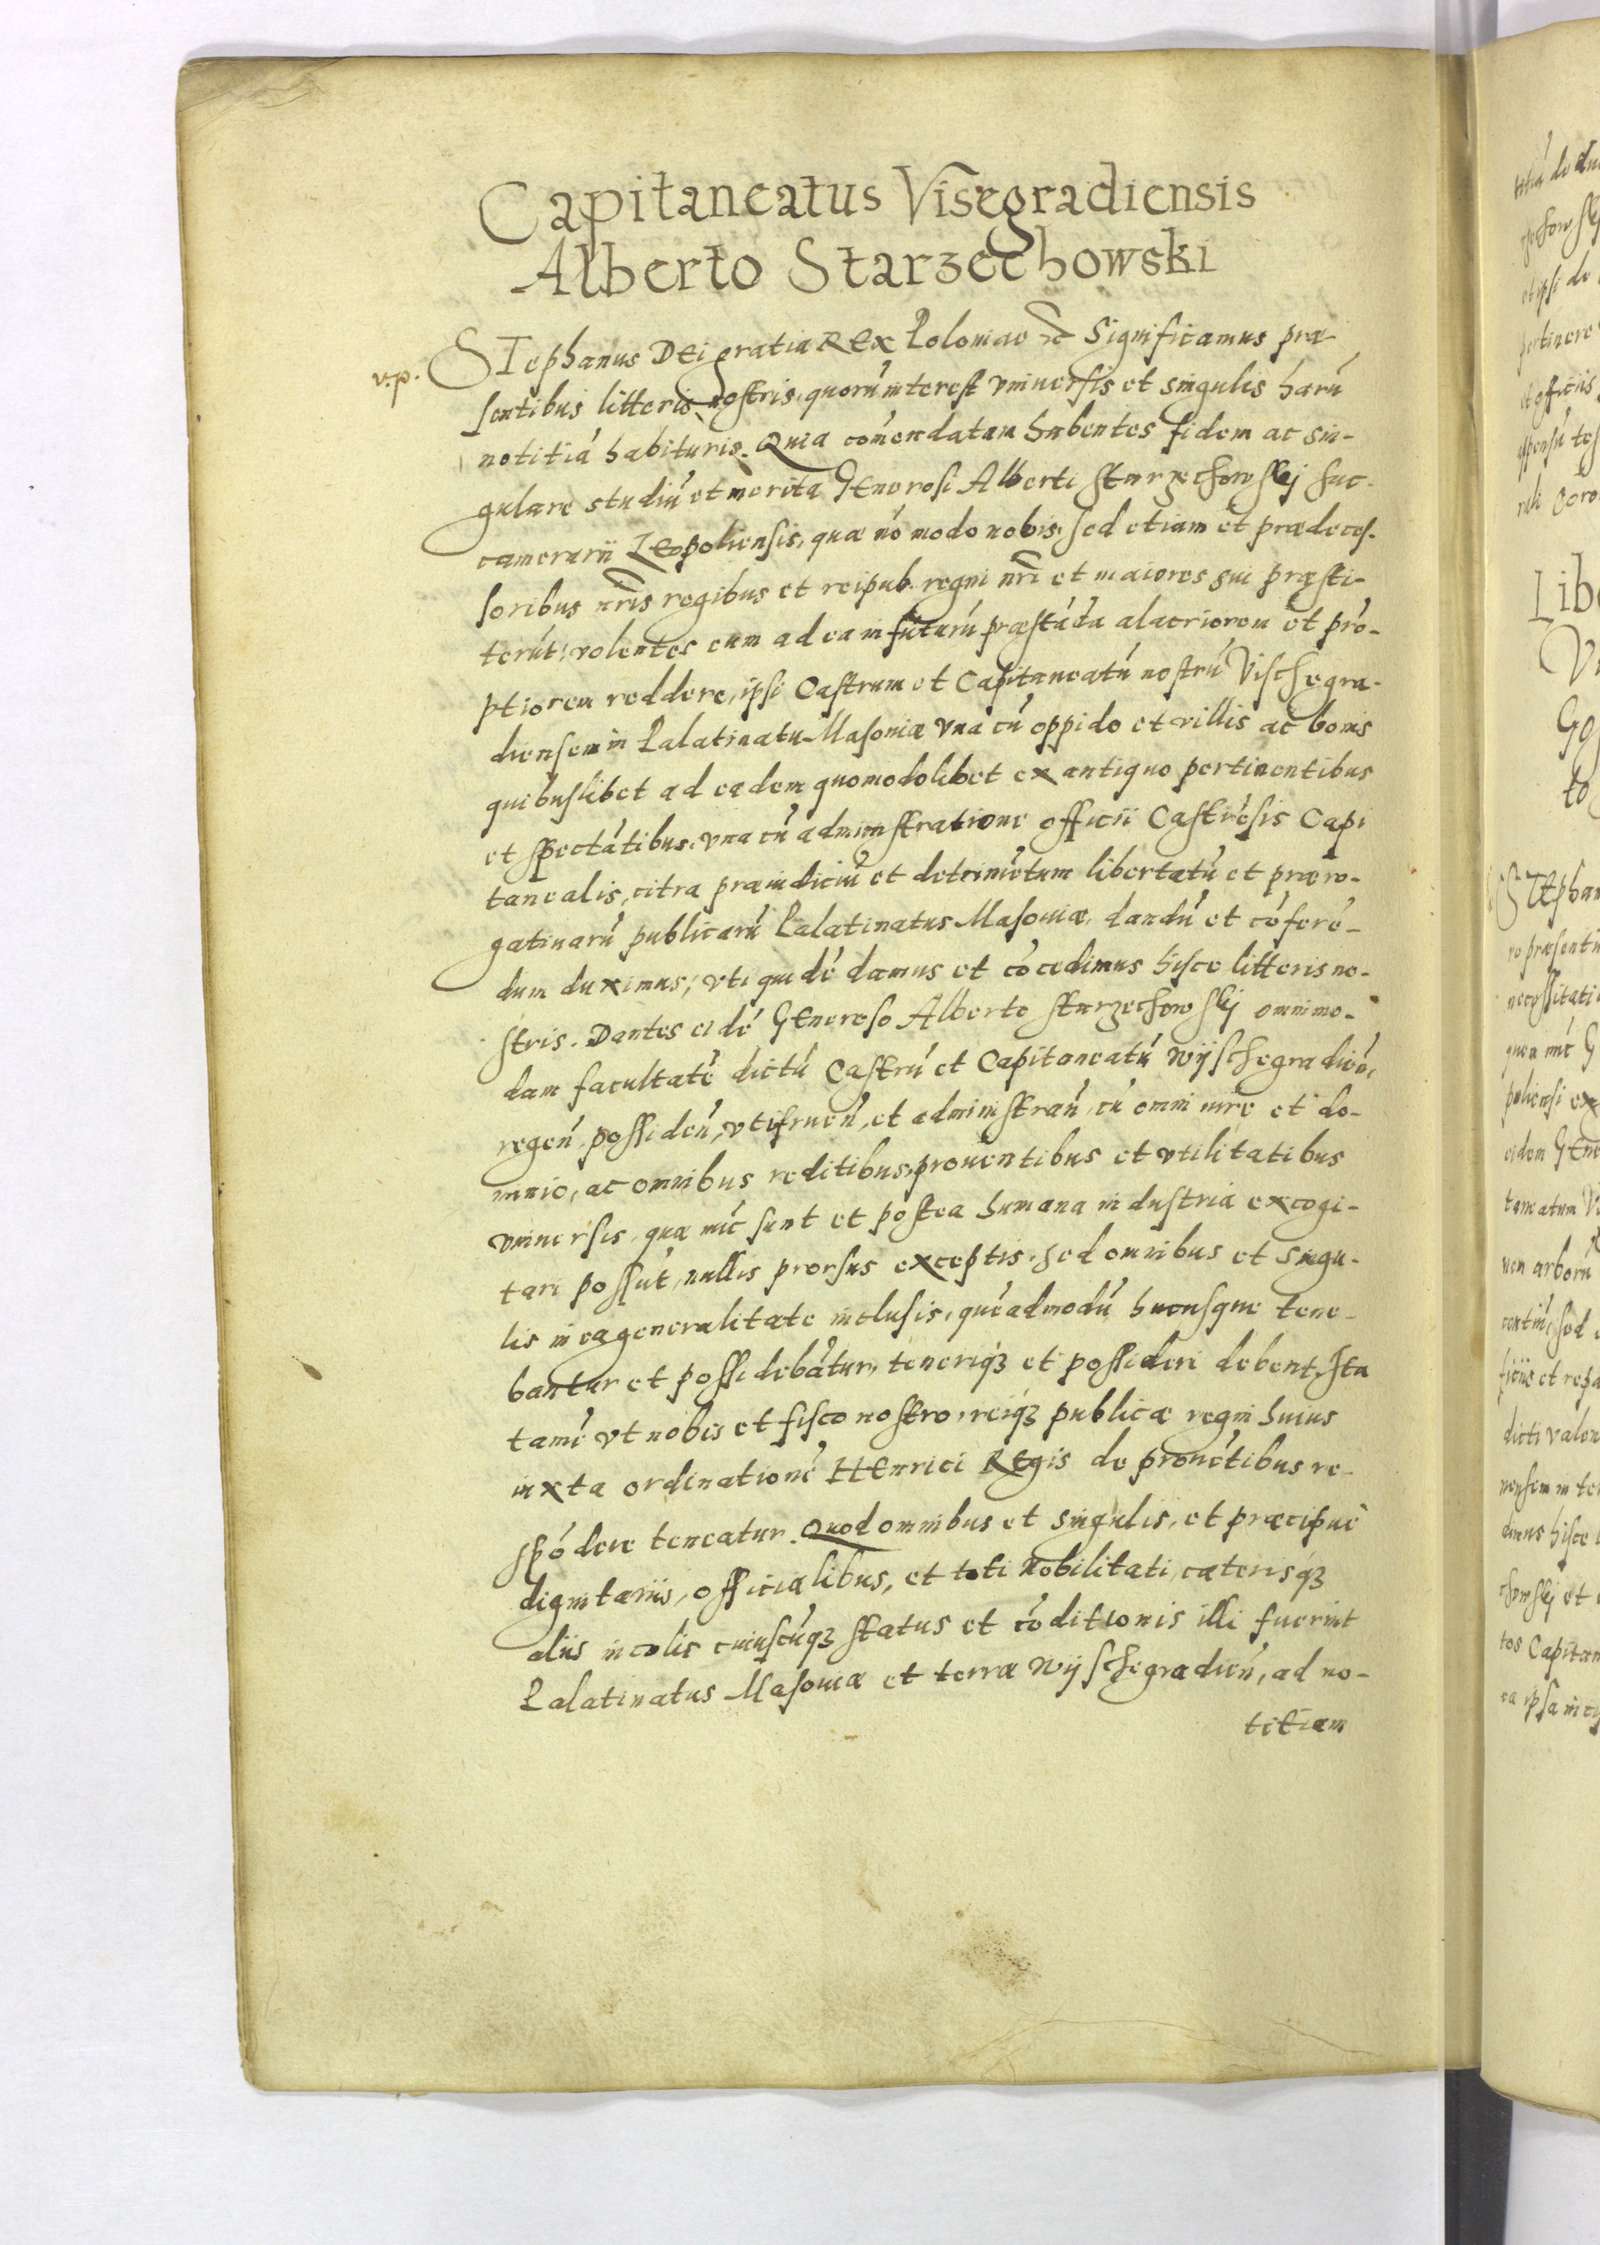 Capitaneatus Visegradiensis
Alberto Starzechowski
v.p.
STephanus DEi gratia REx Poloniae etc Significamus præ
sentibus litteris nostris, quorū interest vniuersis et singulis harū
notitiā habituris. Quia comendatam habentes fidem ac sin-
gulare studiū et merita GEnerosi Alberti Starzechowskÿ suc-
camerarii LEopoliensis, quæ nō modo nobis, sed etiam et prædeces-
soribus nrīs regibus et reipub. regni nrī et maiores sui præsti-
terūt; volentes eum ad ea in futurū præstāda alacriorem et prō-
ptiorem reddere, ipsi Castrum et Capitaneatū nostrū Vischegra-
diensem in Palatinatu Masoviæ vna cū oppido et villis ac bonis
quibuslibet ad eadem quomodolibet ex antiquo pertinentibus
et spectātibus, vna cū administratione officii Castrēsis Capi
tanealis, citra præiudiciū et detrimētum libertatū et præro-
gatiuarū publicarū Palatinatus Masouiæ, dandū et cōferē-
dum duximus; vti quidē damus et cōcedimus hisce litteris no-
stris. Dantes eidē GEneroso Alberto Starzechowskÿ omnimo-
dam facultatē dictū Castrū et Capitaneatū Wÿschegradień,
regeń, possideń, vtifrueń, et administrań, cū omni iure et do-
minio, ac omnibus reditibus, prouentibus et vtilitatibus
vniuersis, quæ nūc sunt et postea humana industria excogi-
tari possūt, nullis prorsus exceptis, sed omnibus et singu-
lis in ea generalitate inclusis, quēadmodū hucusque tene-
bantur et possidebātur, teneriqꝫ et possideri debent. Ita
tamē vt nobis et fisco nostro, reiqꝫ publicæ regni huius
iuxta ordinationē HEnrici REgis de prouētibus re-
spōdere teneatur. Quod omnibus et singulis, et præcipuè
dignitariis, officialibus, et toti Nobilitati, cæterisqꝫ
aliis incolis cuiuscūqꝫ status et cōditionis illi fuerint
Palatinatus Masouiæ et terræ Wÿschegradień, ad no-
titiam